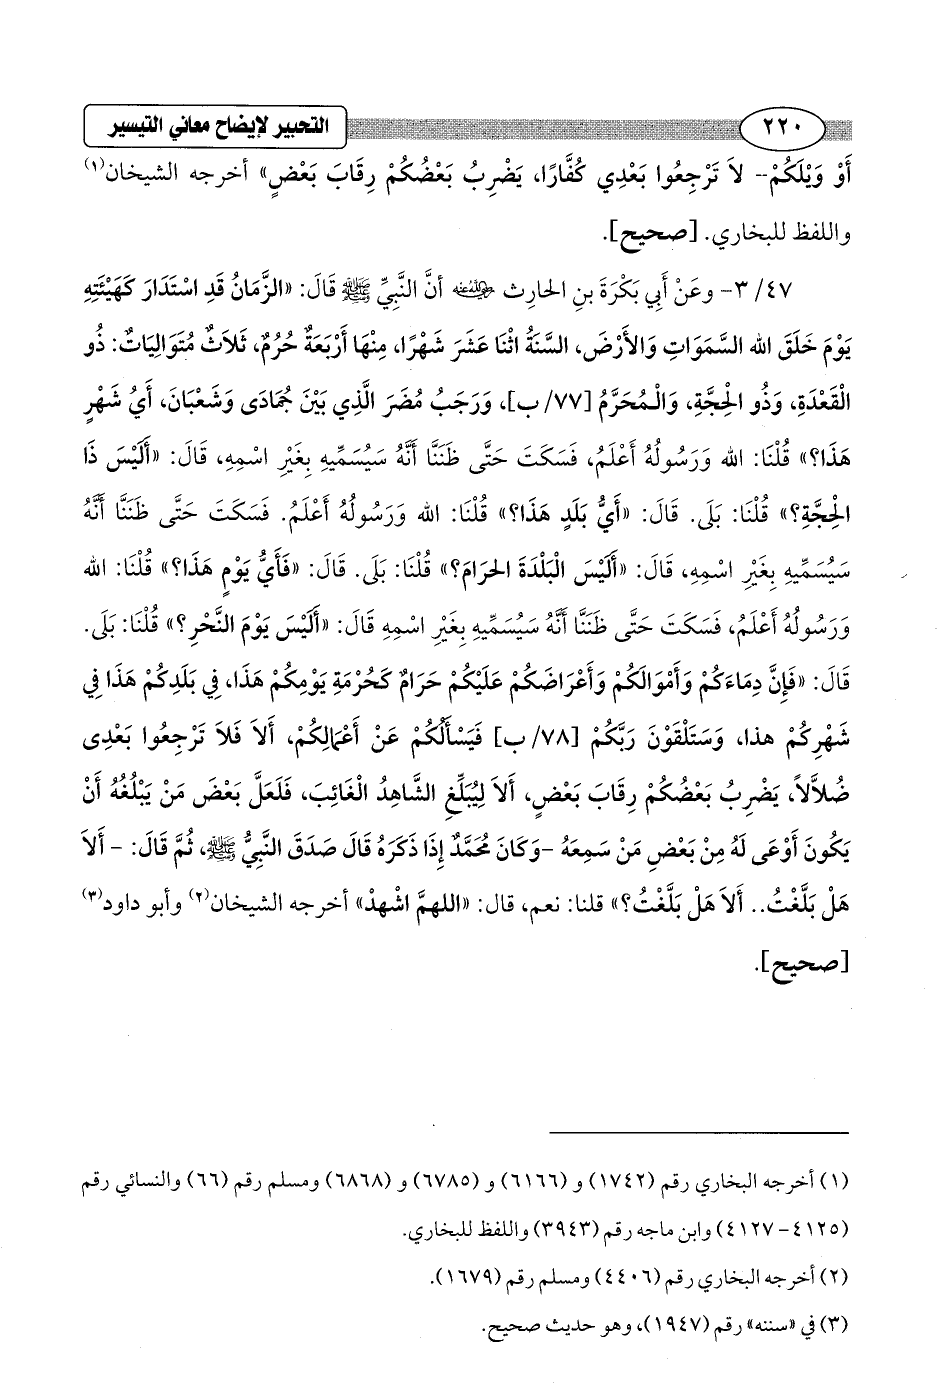 ٢٢٠ التحبير لإيضاح معاني التيسير
أَوْ وَيْلَكُمْ-- لاَ تَرْجِعُوا بَعْدِي كُفَّارًا، يَضْرِبُ بَعْضُكُمْ رِقَابَ بَعْضٍ» أخرجه الشيخان(١)
واللفظ للبخاري. [صحيح].
٣/٤٧- وعَنْ أَبِي بَكْرَةَ بنِ الحارِث رضي الله عنه أنَّ النَّبِيَّ ﷺ قَالَ: «الزَّمَانُ قَدِ اسْتَدَارَ كَهَيْئَتِهِ
يَوْمَ خَلَقَ الله السَّمَوَاتِ وَالأَرْضَ، السَّنَةُ اثْنَا عَشَرَ شَهْرًا، مِنْهَا أَرْبَعَةٌ حُرُمٌ، ثَلاَثٌ مُتَوَالِيَاتٌ: ذُو
الْقَعْدَةِ، وَذُو الْحِجَّةِ، وَالْمُحَرَّمُ [٧٧/ ب]، وَرَجَبُ مُضَرَ الَّذِي بَيْنَ جُمَادَى وَشَعْبَانَ، أَيُّ شَهْرٍ
هَذَا؟» قُلْنَا: الله وَرَسُولُهُ أَعْلَمُ، فَسَكَتَ حَتَّى ظَنَنَّا أَنَّهُ سَيُسَمِّيهِ بِغَيْرِ اسْمِهِ، قَالَ: «أَلَيْسَ ذَا
الْحِجَّةِ؟» قُلْنَا: بَلَى. قَالَ: «أَيُّ بَلَدٍ هَذَا؟» قُلْنَا: الله وَرَسُولُهُ أَعْلَمُ. فَسَكَتَ حَتَّى ظَنَنَّا أَنَّهُ
سَيُسَمِّيهِ بِغَيْرِ اسْمِهِ، قَالَ: «أَلَيْسَ الْبَلْدَةَ الحَرَامَ؟» قُلْنَا: بَلَى. قَالَ: «فَأَيُّ يَوْمٍ هَذَا؟» قُلْنَا: الله
وَرَسُولُهُ أَعْلَمُ، فَسَكَتَ حَتَّى ظَنَنَّا أَنَّهُ سَيُسَمِّيهِ بِغَيْرِ اسْمِهِ قَالَ: «أَلَيْسَ يَوْمَ النَّحْرِ؟» قُلْنَا: بَلَى.
قَالَ: «فَإِنَّ دِمَاءَكُمْ وَأَمْوَالَكُمْ وَأَعْرَاضَكُمْ عَلَيْكُمْ حَرَامٌ كَحُرْمَةِ يَوْمِكُمْ هَذَا، فِي بَلَدِكُمْ هَذَا فِي
شَهْرِكُمْ هذا، وَسَتَلْقَوْنَ رَبَّكُمْ [٧٨/ ب] فَيَسْأَلُكُمْ عَنْ أَعْمَالِكُمْ، أَلاَ فَلاَ تَرْجِعُوا بَعْدِى
ضُلاَّلاً، يَضْرِبُ بَعْضُكُمْ رِقَابَ بَعْضٍ، أَلاَ لِيُبَلِّغِ الشَّاهِدُ الْغَائِبَ، فَلَعَلَّ بَعْضَ مَنْ يَبْلُغُهُ أَنْ
يَكُونَ أَوْعَى لَهُ مِنْ بَعْضِ مَنْ سَمِعَهُ -وَكَانَ مُحَمَّدٌ إِذَا ذَكَرَهُ قَالَ صَدَقَ النَّبِيُّ ﷺ، ثُمَّ قَالَ: - أَلاَ
هَلْ بَلَّغْتُ.. أَلاَ هَلْ بَلَّغْتُ؟» قلنا: نعم، قال: «اللهمَّ اشْهدْ» أخرجه الشيخان(٢) وأبو داود(٣)
[صحيح].
(١) أخرجه البخاري رقم (١٧٤٢) و (٦١٦٦) و (٦٧٨٥) و (٦٨٦٨) ومسلم رقم (٦٦) والنسائي رقم
(٤١٢٥-٤١٢٧) وابن ماجه رقم (٣٩٤٣) واللفظ للبخاري.
(٢) أخرجه البخاري رقم (٤٤٠٦) ومسلم رقم (١٦٧٩).
(٣) في «سننه» رقم (١٩٤٧)، وهو حديث صحيح.